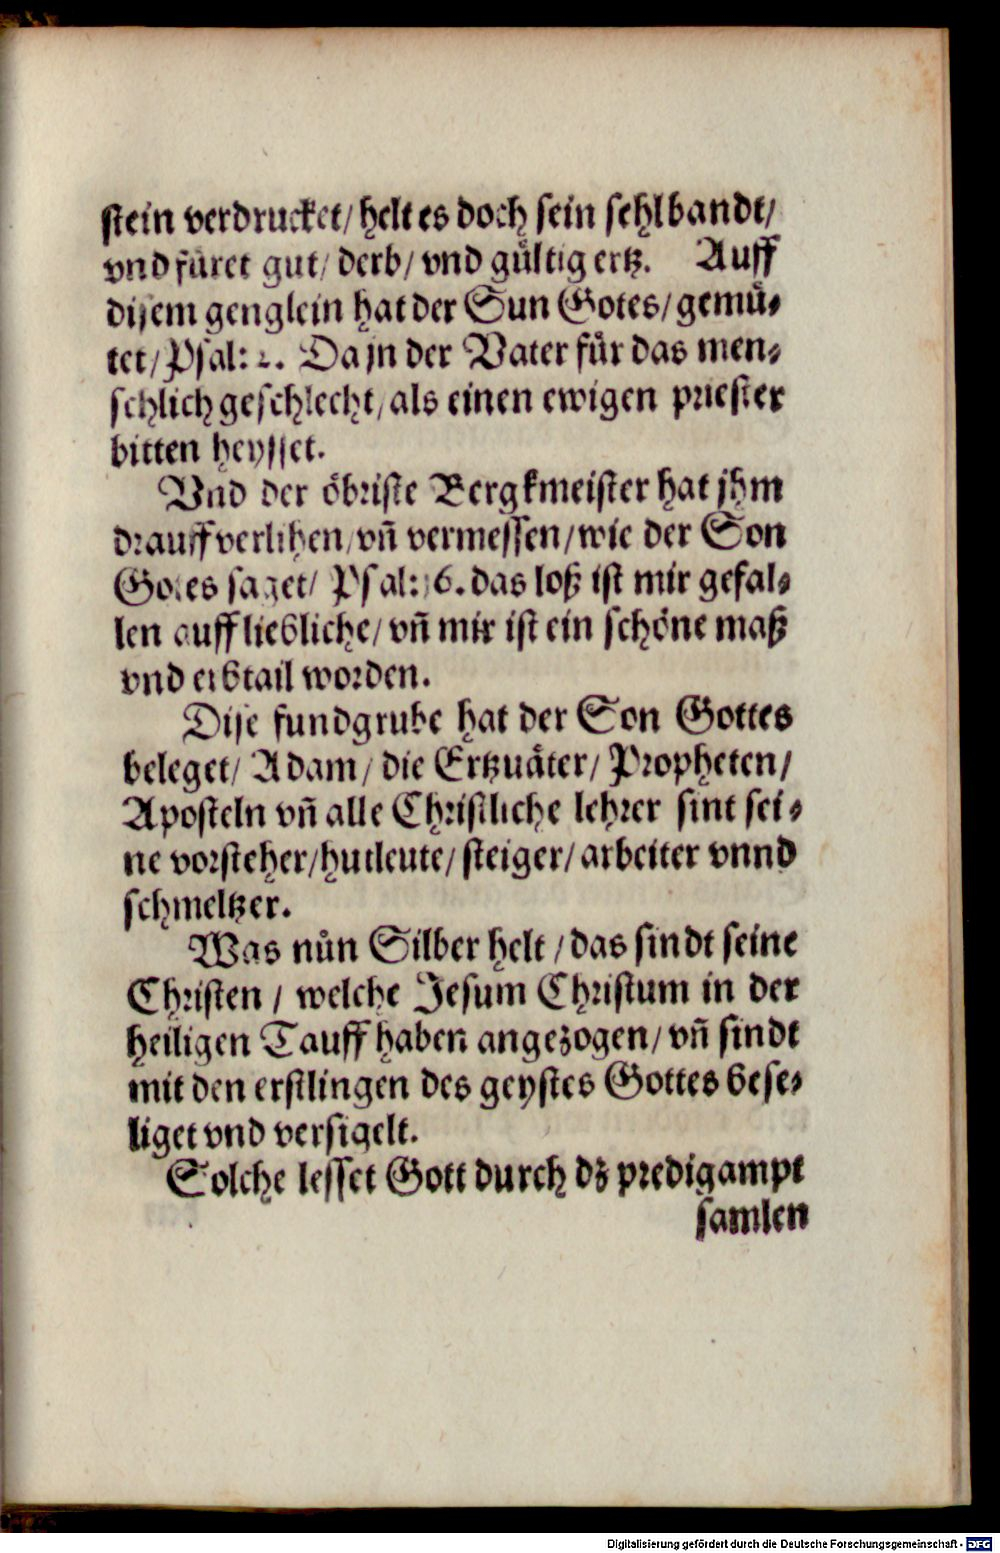 stein verdrucket/ helt es doch sein sehlbandt/
vnd füret gut/ derb/ vnd gültig ertz. Auff
disem genglein hat der Sun Gotes/ gemü-
tet/ Psal: 2. Da jn der Vater für das men-
schlich geschlecht/ als einen ewigen priester
bitten heysset.
Vnd der öbriste Bergkmeister hat jhm
drauff verlihen/ vñ vermessen/ wie der Son
Gotes saget/ Psal: 16. das loß ist mir gefal-
len auff liebliche/ vñ mir ist ein schöne maß
vnd erbtail worden.
Dise fundgrube hat der Son Gottes
beleget/ Adam/ die Ertzuäter/ Propheten/
Aposteln vñ alle Christliche lehrer sint sei-
ne vorsteher/ hutleute/ steiger/ arbeiter vnnd
schmeltzer.
Was nůn Silber helt/ das sindt seine
Christen/ welche Jesum Christum in der
heiligen Tauff haben angezogen/ vñ sindt
mit den erstlingen des geystes Gottes bese-
liget vnd versigelt.
Solche lesset Gott durch dz predigampt
samlen
Digitalisierung gefördert durch die Deutsche Forschungsgemeinschaft - DFG